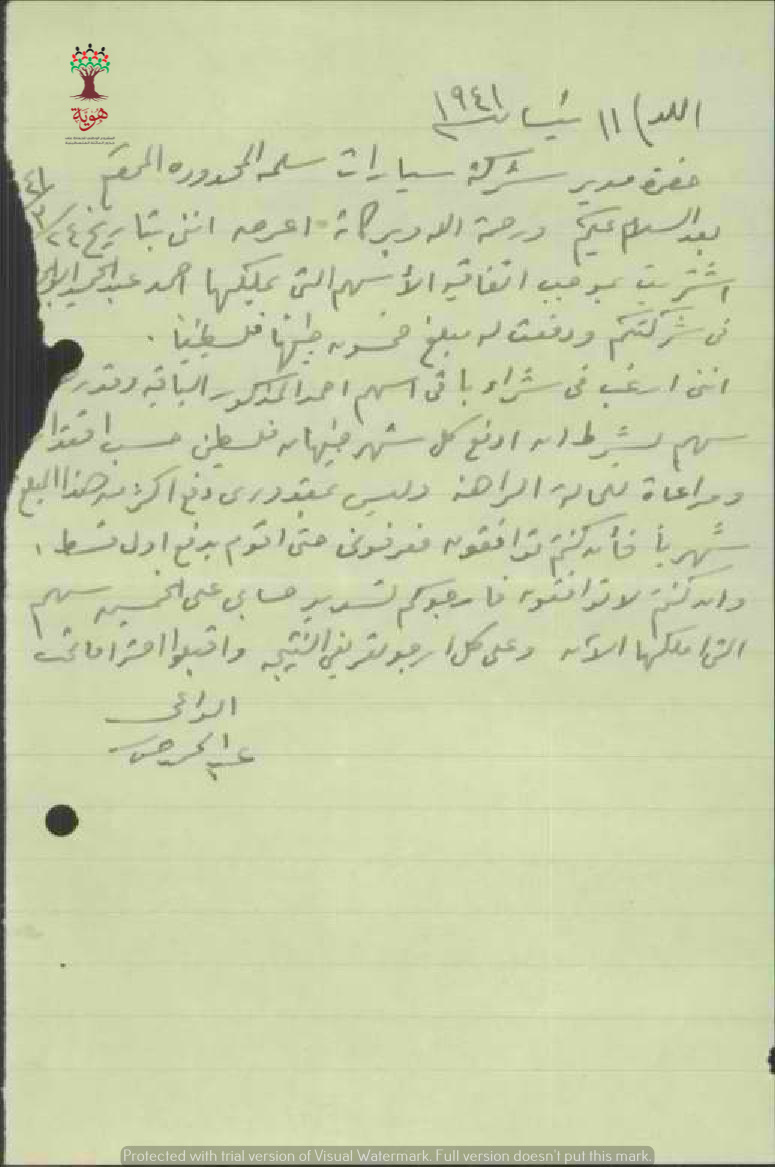 هوية
اللد) ١١ نيسان ١٩٤١
حضرة مدير شركة سيارات سلمه المحدوده المحترم
بعد السلام عليكم ورحمة الله وبركاته اعرض انني بتاريخ ٢٤/٣/٤١
اشتريت بموجب اتفاقيه الأسهم التي يملكها احمد عبد الحميد
في شركتكم ودفعت له مبلغ خمسون جنيهاً فلسطينياً .
انني ارغب في شراء باقي اسهم احمد المذكور الباقيه وقدرها
سهم بشرط ان ادفع كل شهر جنيهان فلسطيني حسب اقتدا
ومراعاة للحالة الراهنة وليس بمقدوري دفع اكثر من هذا المبلغ
شهرياً فأن كنتم توافقون فعرفوني حتى اقوم بدفع اول قسط ،
وان كنتم لا توافقون فارجوكم تسديد حسابي على الخمسين سهم
التي املكها الآن وعلى كل ارجو تعريفي النتيجه واقبلوا احتراماتي
الداعي
Protected with trial version of Visual Watermark. Full version doesn't put this mark.